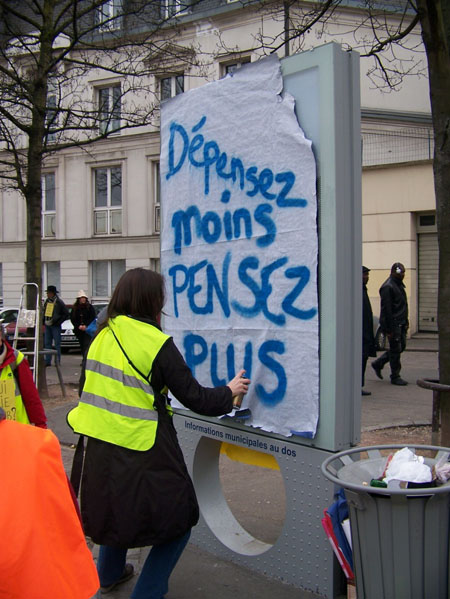 Dépensez
moins
PENSEZ
PLUS
Informations municipales au dos